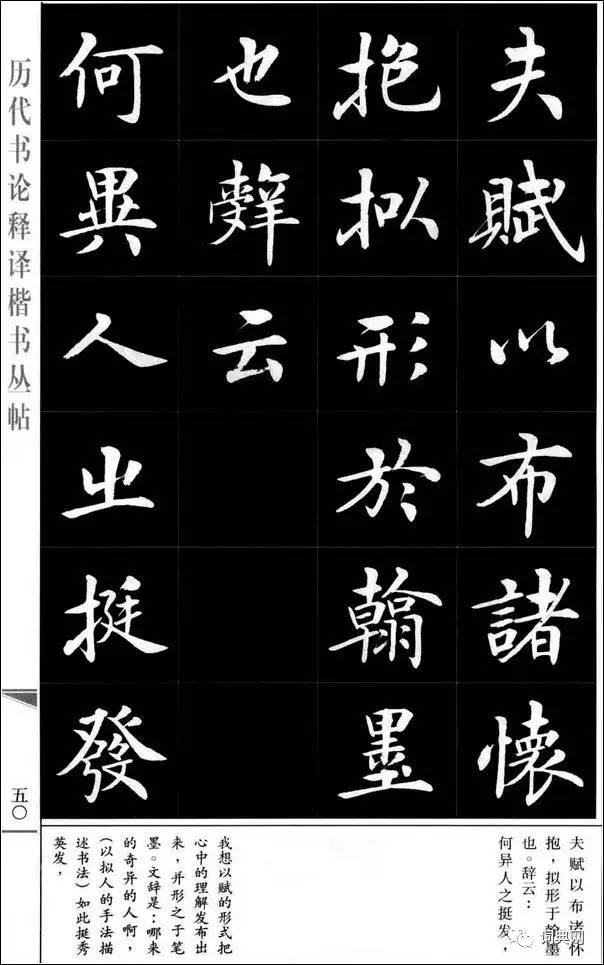 夫賦以布諸懷
抱拟形於翰墨
也辤云
何異人之挺發
历代书论释译楷书丛帖
五〇
夫赋以布诸怀
抱，拟形于翰墨
也。辞云：
何异人之挺发，
我想以赋的形式把
心中的理解发布出
来，并形之于笔
墨。文辞是：哪来
的奇异的人啊，
（以拟人的手法描
述书法）如此挺秀
英发，
词典网